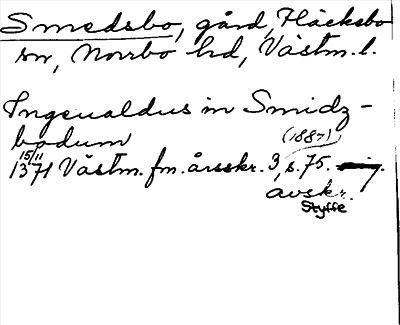 Smedsbo, gård, Fläcksbo
sn, Norrbo hd, Västm. l.
Ingeualdus in Smidz-
bodum
(1887)
15/11
1371 Västm. fm. årsskr. 3, s. 75.
avskr.
Styffe